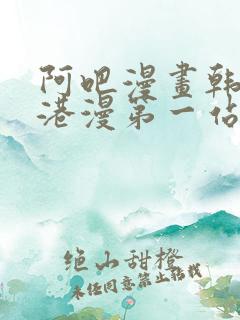 阿吧漫畫韩
港漫第一佔
绝山甜橙
未经同意禁止转载